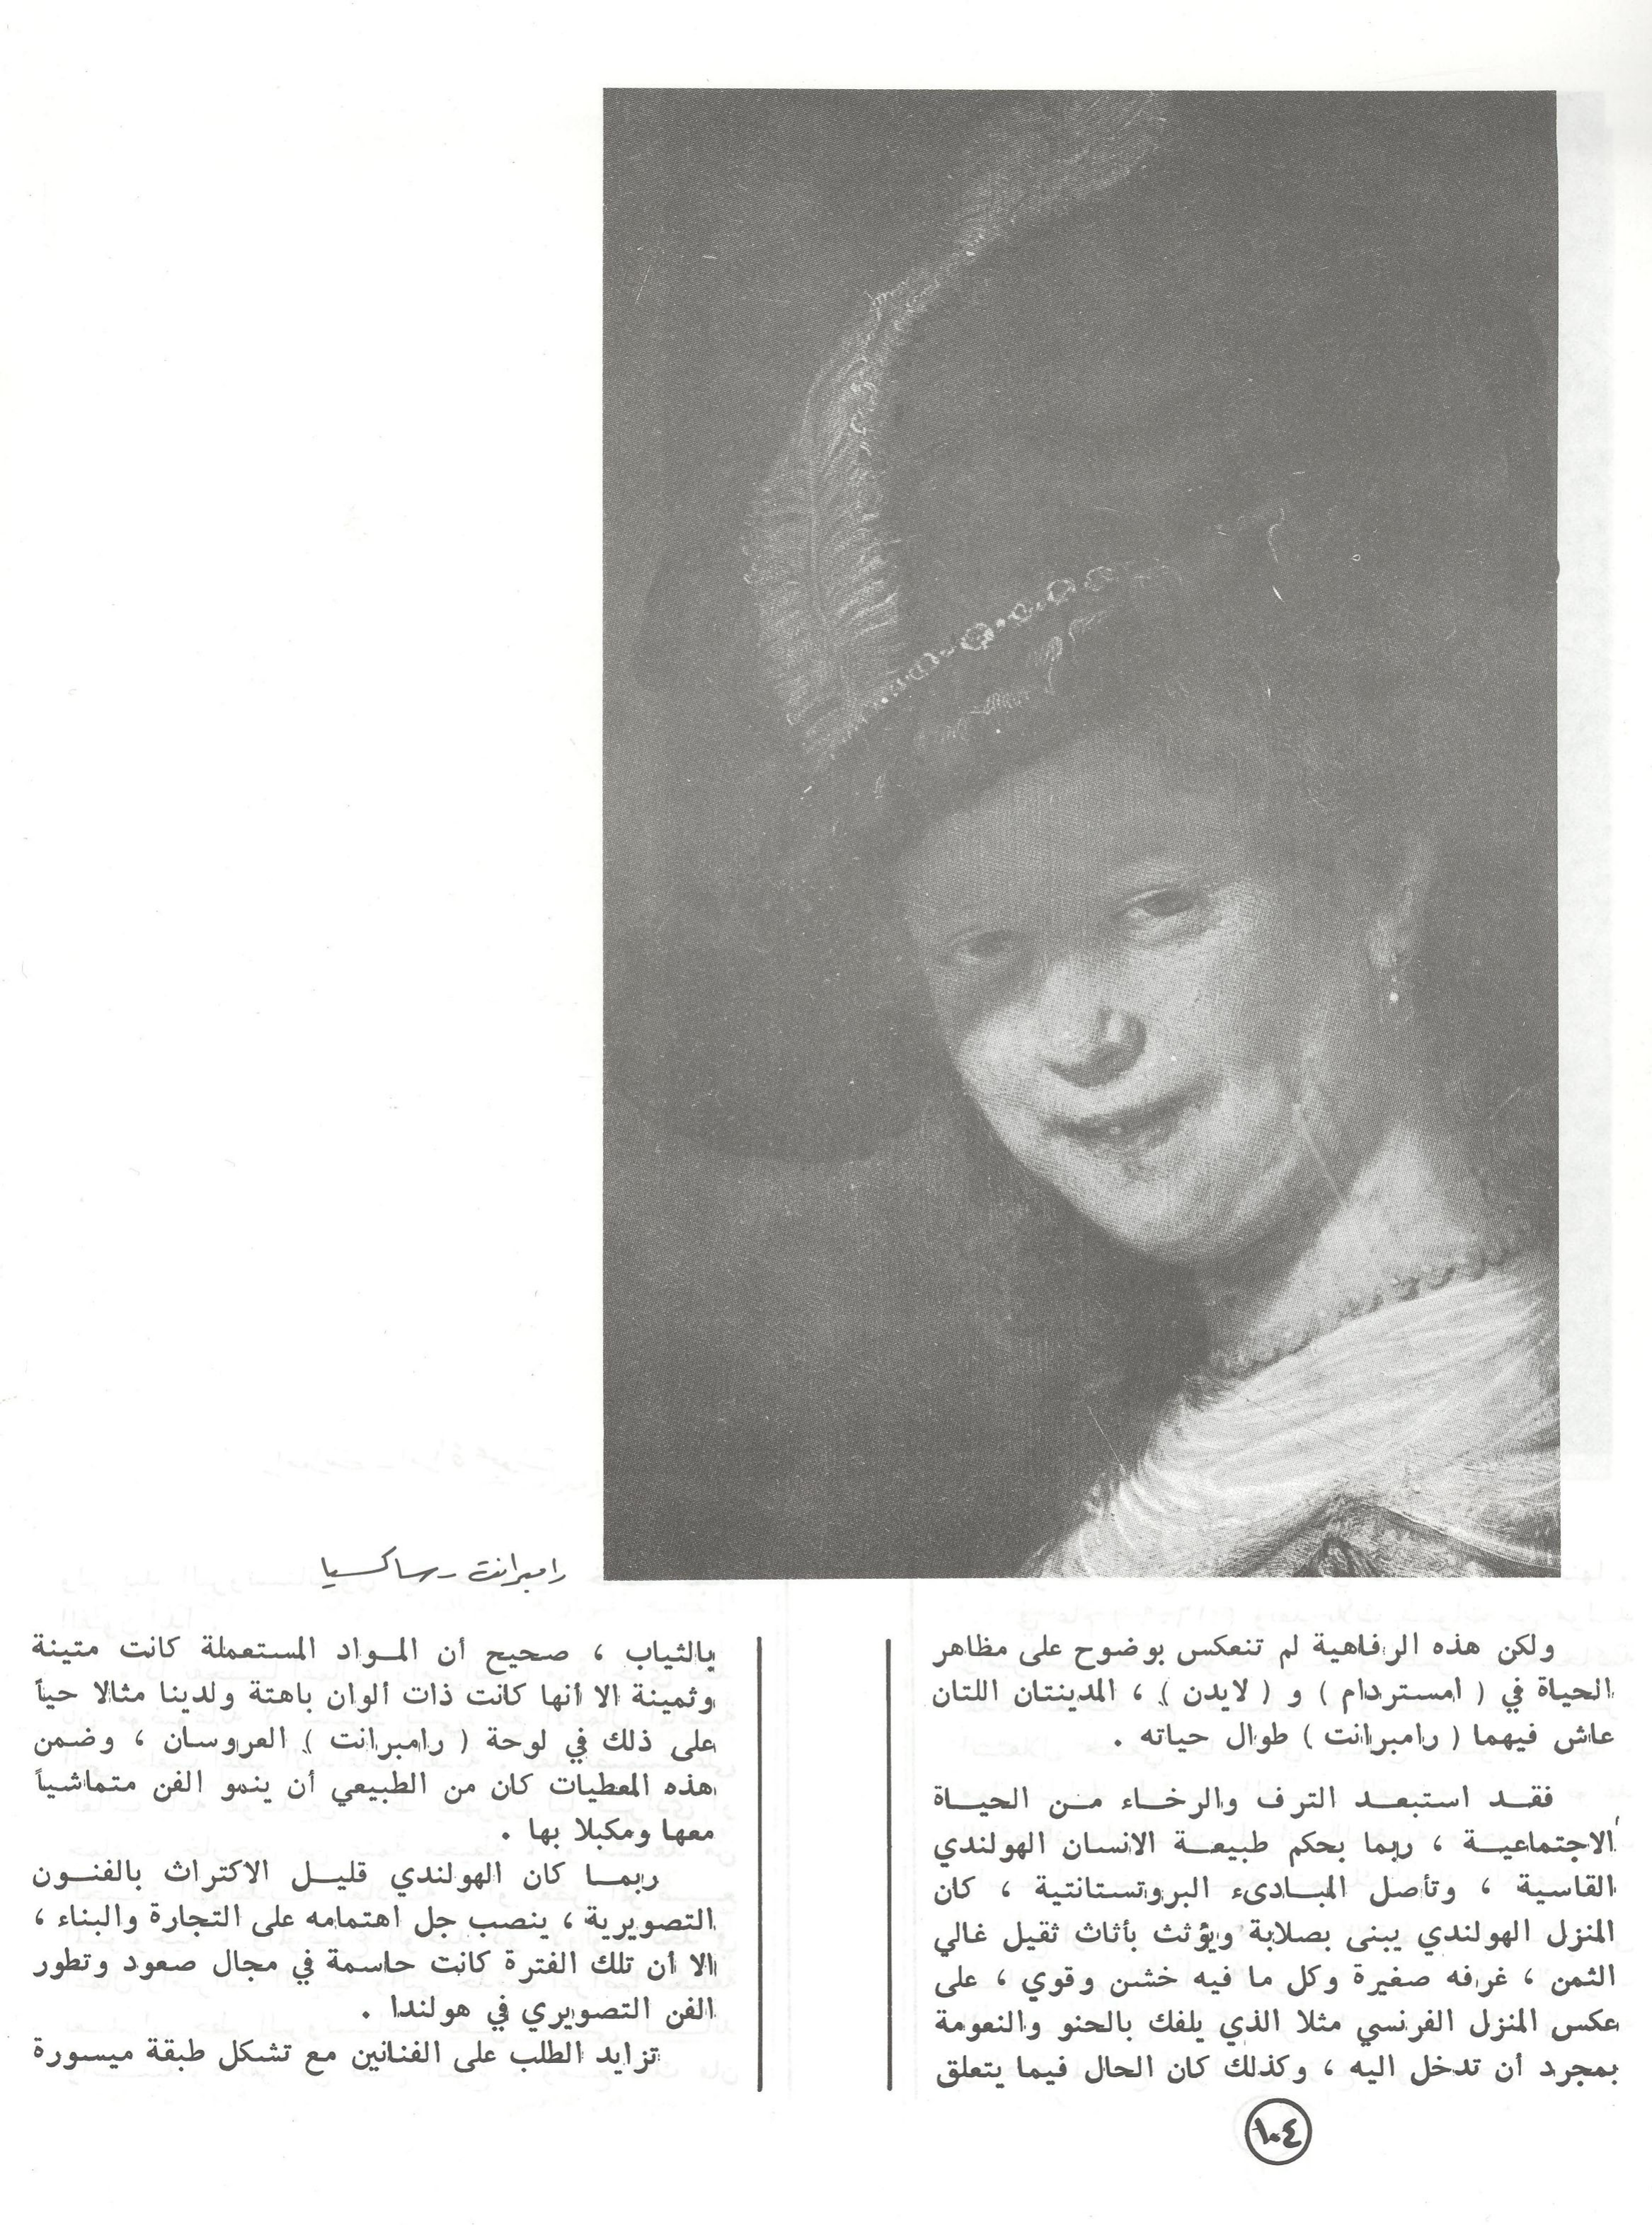 رامبرانت - ساكسيا
ولكن هذه الرفاهية لم تنعكس بوضوح على مظاهر
الحياة في ( امستردام ) و ( لايدن ) ، المدينتان اللتان
عاش فيهما ( رامبرانت ) طوال حياته .
فقد استبعد الترف والرخاء من الحياة
الاجتماعية ، ربما بحكم طبيعة الانسان الهولندي
القاسية ، وتأصل المبادىء البروتستانتية ، كان
المنزل الهولندي يبنى بصلابة ويؤثث بأثاث ثقيل غالي
الثمن ، غرفه صغيرة وكل ما فيه خشن وقوي ، على
عكس المنزل الفرنسي مثلا الذي يلفك بالحنو والنعومة
بمجرد أن تدخل اليه ، وكذلك كان الحال فيما يتعلق
بالثياب ، صحيح أن المواد المستعملة كانت متينة
وثمينة الا أنها كانت ذات ألوان باهتة ولدينا مثالا حياً
على ذلك في لوحة ( رامبرانت ) العروسان ، وضمن
هذه المعطيات كان من الطبيعي أن ينمو الفن متماشياً
معها ومكبلا بها .
ربما كان الهولندي قليل الاكتراث بالفنون
التصويرية ، ينصب جل اهتمامه على التجارة والبناء ،
الا أن تلك الفترة كانت حاسمة في مجال صعود وتطور
الفن التصويري في هولندا .
تزايد الطلب على الفنانين مع تشكل طبقة ميسورة
١٠٤